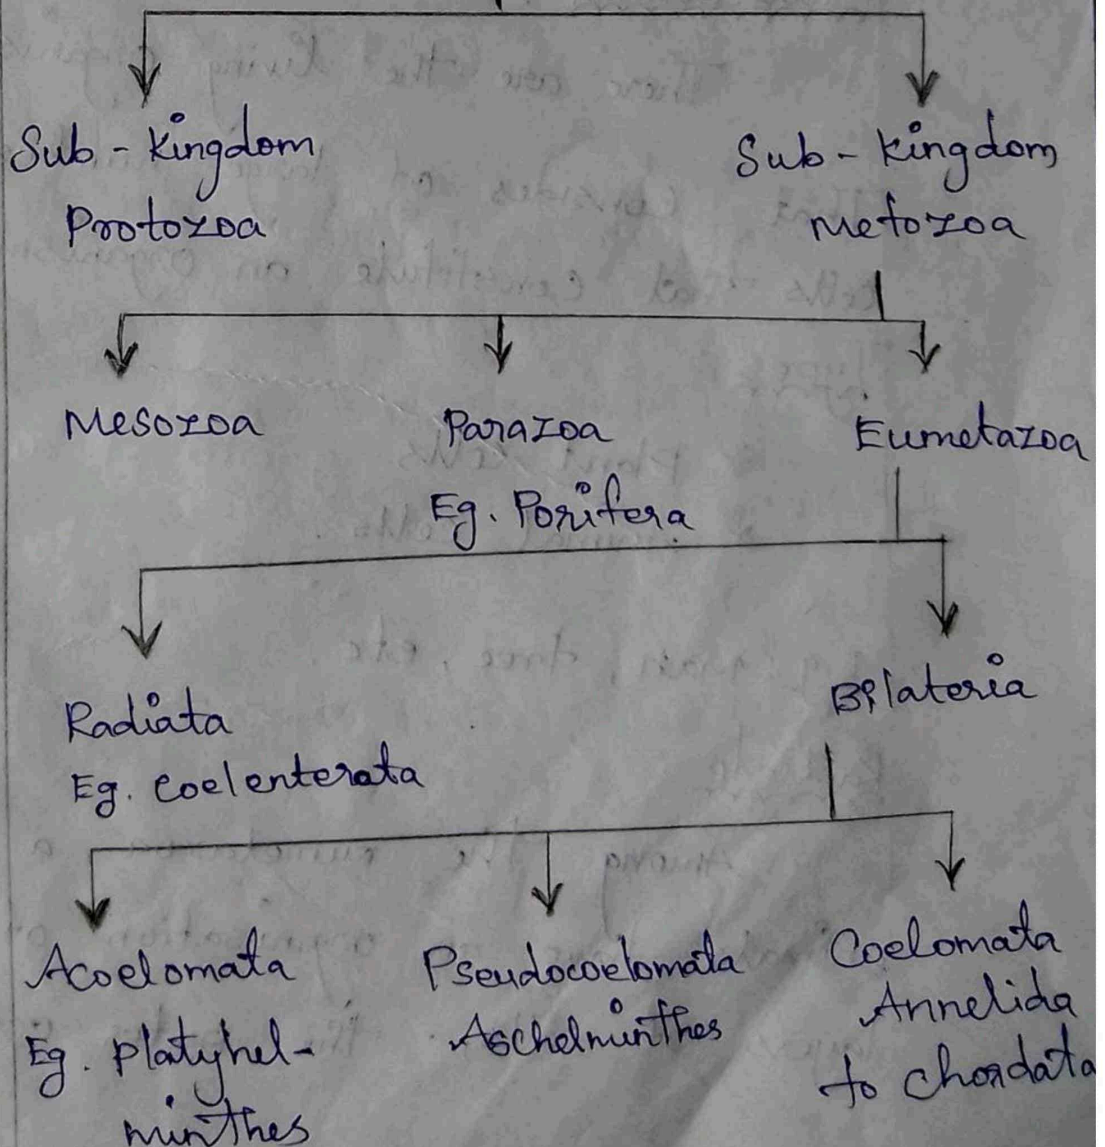 Sub - Kingdom
Protozoa
Sub - Kingdom
Metozoa
Mesozoa
Parazoa
Eg. Porifera
Eumetazoa
Radiata
Eg. Coelenterata
Bilateria
Acoelomata
Eg. Platyhel-
minthes
Pseudocoelomata
Aschelminthes
Coelomata
Annelida
to chordata